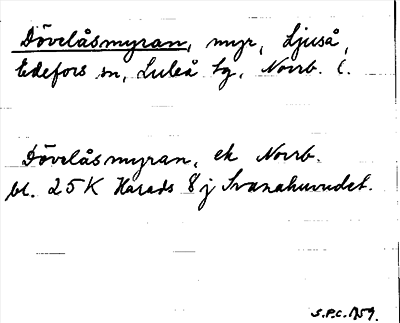 Dövelåsmyran, myr, Ljuså,
Edefors sn, Luleå tg, Norrb. l.
Dövelåsmyran, ek Norrb.
bl. 25 K Harads 8 j Svanahuvudet.
S.P.C. 1959.